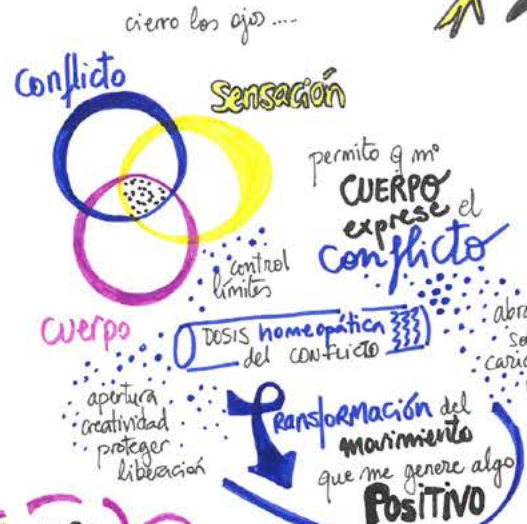 cierro los ojos ....
Conflicto
Sensación
permito q mi
CUERPO
exprese el
Conflicto
control
límites
cuerpo
DOSIS homeopática
del CONFLICTO
apertura
creatividad
proteger
liberación
TRANSfORMACIÓN del
movimiento
que me genere algo
POSITIVO